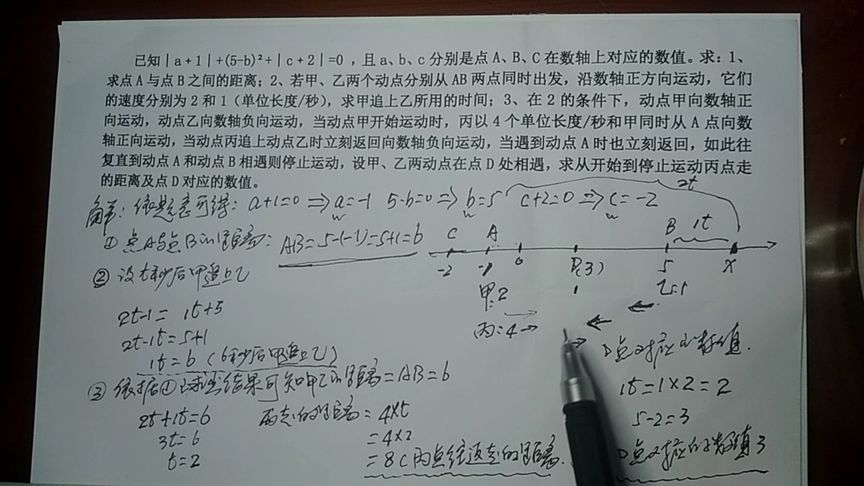 已知|a+1|+(5-b)²+|c+2|=0，且a、b、c分别是点A、B、C在数轴上对应的数值。求：1、
求点A与点B之间的距离；2、若甲、乙两个动点分别从AB两点同时出发，沿数轴正方向运动，它们
的速度分别为2和1（单位长度/秒），求甲追上乙所用的时间；3、在2的条件下，动点甲向数轴正
向运动，动点乙向数轴负向运动，当动点甲开始运动时，丙以4个单位长度/秒和甲同时从A点向数
轴正向运动，当动点丙追上动点乙时立刻返回向数轴负向运动，当遇到动点A时也立刻返回，如此往
复直到动点A和动点B相遇则停止运动，设甲、乙两动点在点D处相遇，求从开始到停止运动丙点走
的距离及点D对应的数值。
2t
解：依题意可得：a+1=0⇒a=-1 5-b=0⇒b=5 c+2=0⇒c=-2
①点A与点B的距离：AB=5-(-1)=5+1=6
C A B 1t
-2 -1 0 D(3) 5 x
②设t秒后甲追上乙
甲:2 乙:1
2t-1=1t+5
丙:4→
2t-1t=5+1
D点对应的数值.
1t=6(6秒后甲追上乙)
③依据①的求出结果可知甲乙的距离=AB=6
1t=1×2=2
2t+1t=6 丙走的距离=4×t
5-2=3
3t=6 =4×2
t=2 =8(丙点往返走的距离.
D点对应的数值3